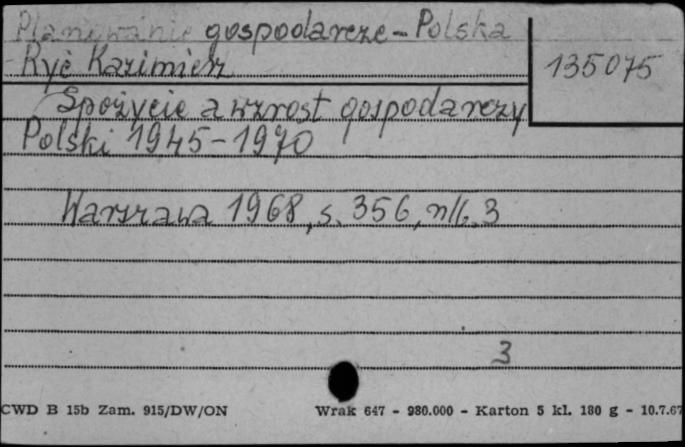 Planowanie gospodarcze - Polska
Ryć Kazimierz
135075
Spożycie a wzrost gospodarczy
Polski 1945-1970
Warszawa 1968, s. 356, nlb. 3
3
CWD B 15b Zam. 915/DW/ON Wrak 647 - 980.000 - Karton 5 kl. 180 g - 10.7.67